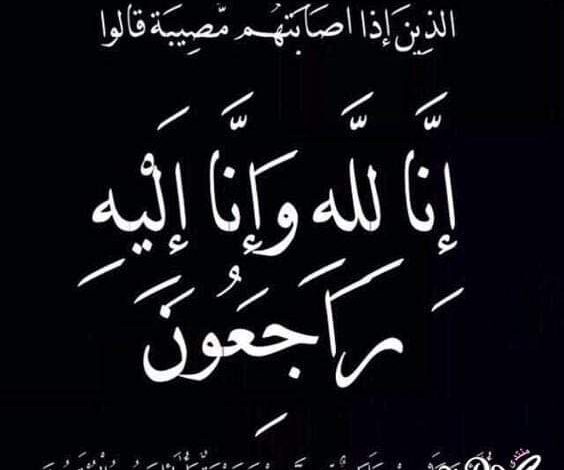 الذِينَ إِذَا أَصَابَتهُم مُّصِيبَة قالوا
إِنَّا لِلَّهِ وَإِنَّا إِلَيْهِ
رَاجِعُونَ